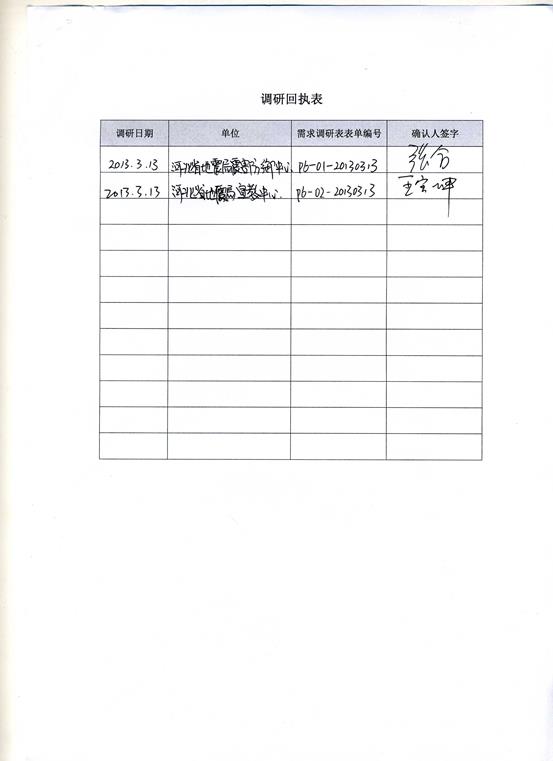 调研回执表
调研日期 单位 需求调研表表单编号 确认人签字
2013.3.13 河北省地震局震害防御中心 Pb-01-20130313 张合
2013.3.13 河北省地震局宣教中心. Pb-02-20130313 王宝坤